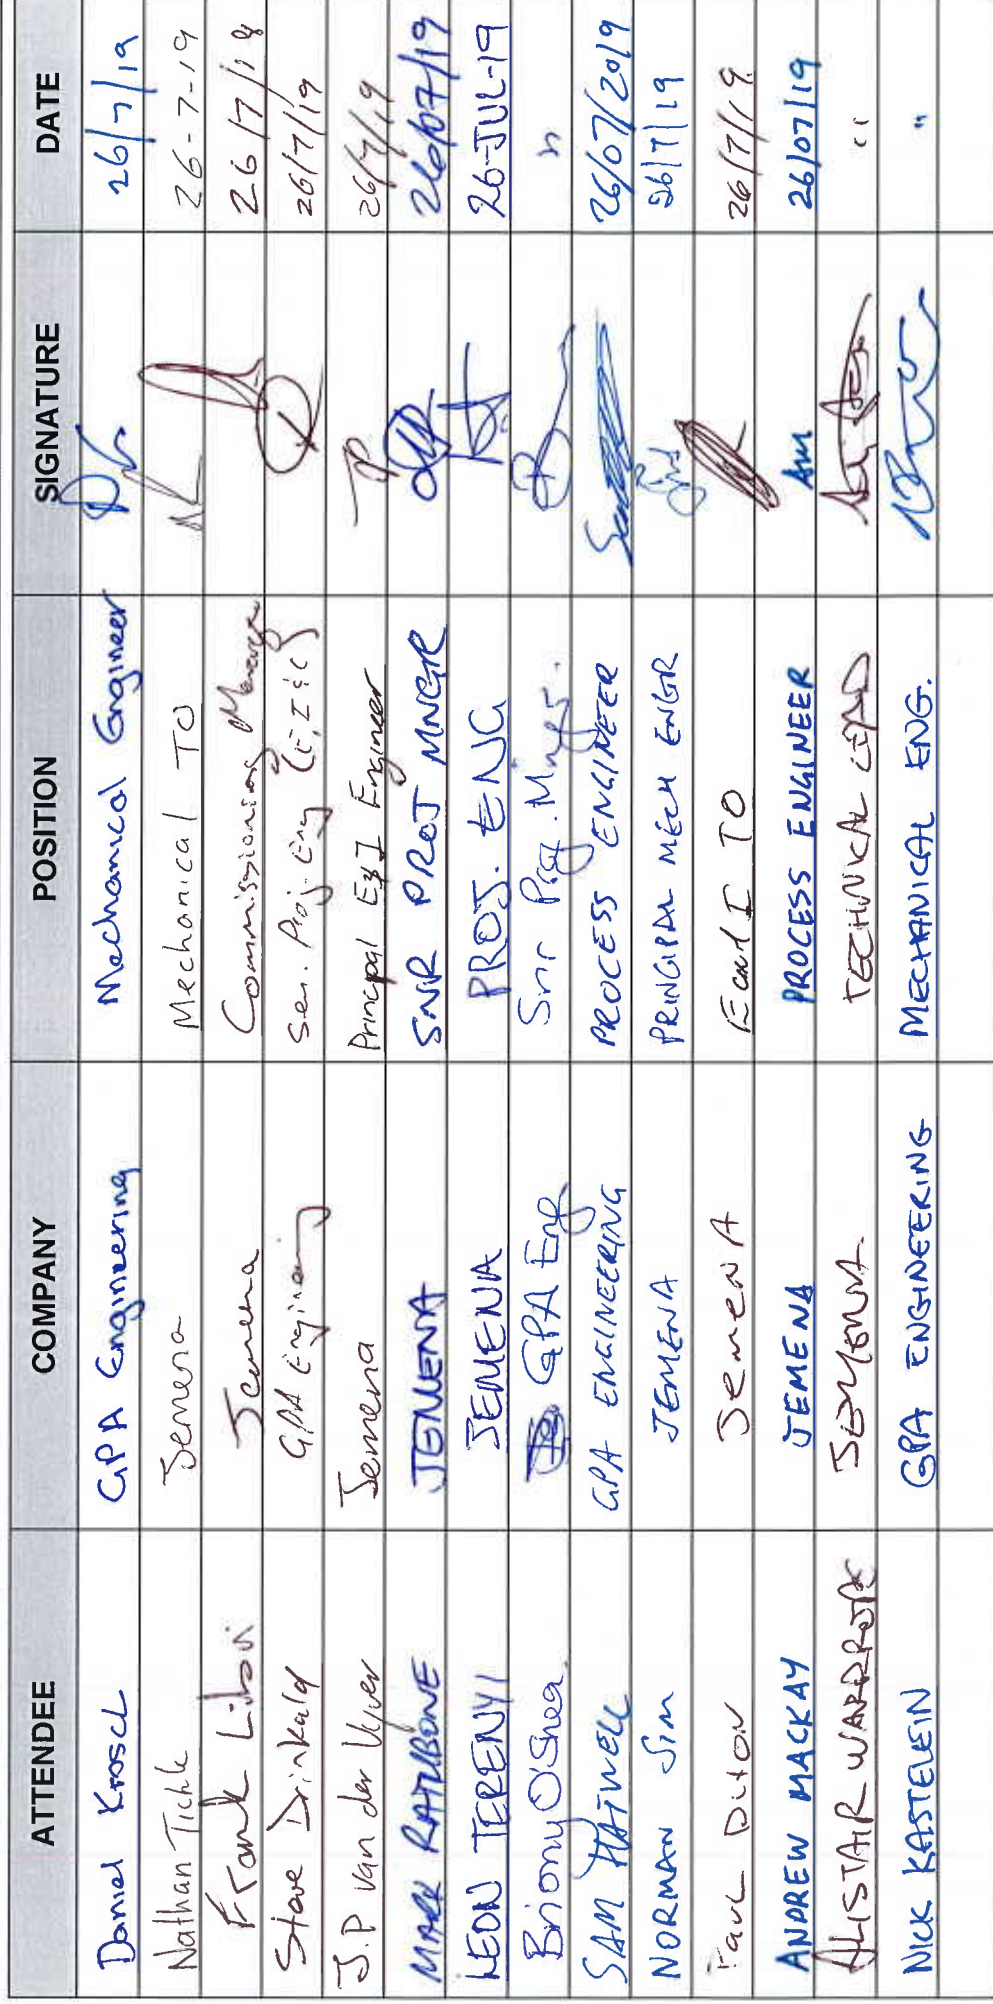 ATTENDEE COMPANY POSITION SIGNATURE DATE
Daniel Krosch GPA Engineering Mechanical Engineer 26/7/19
Nathan Tichle Jemena Mechanical TO 26-7-19
Frank Jemena Commissioning Manager 26/7/18
Steve Drinkald GPA Engineering Sen. Proj. Eng (E, I & C) 26/7/19
J.P van der Vyver Jemena Principal E&I Engineer 26/7/19
MARK RATHBONE JEMENA SNR PROJ MNGR 26/07/19
LEON TERENYI JEMENA PROJ. ENG 26-JUL-19
Briony O'Shea GPA Eng Snr Proj. "
SAM HATWELL GPA ENGINEERING PROCESS ENGINEER 26/07/2019
NORMAN Sim JEMENA PRINCIPAL MECH ENGR 26/7/19
PAUL DITON JemenA E and I TO 26/7/19
ANDREW MACKAY JEMENA PROCESS ENGINEER Am 26/07/19
ALISTAIR WARDROPE JEMENA TECHNICAL LEAD "
NICK KASTELEIN GPA ENGINEERING MECHANICAL ENG. "